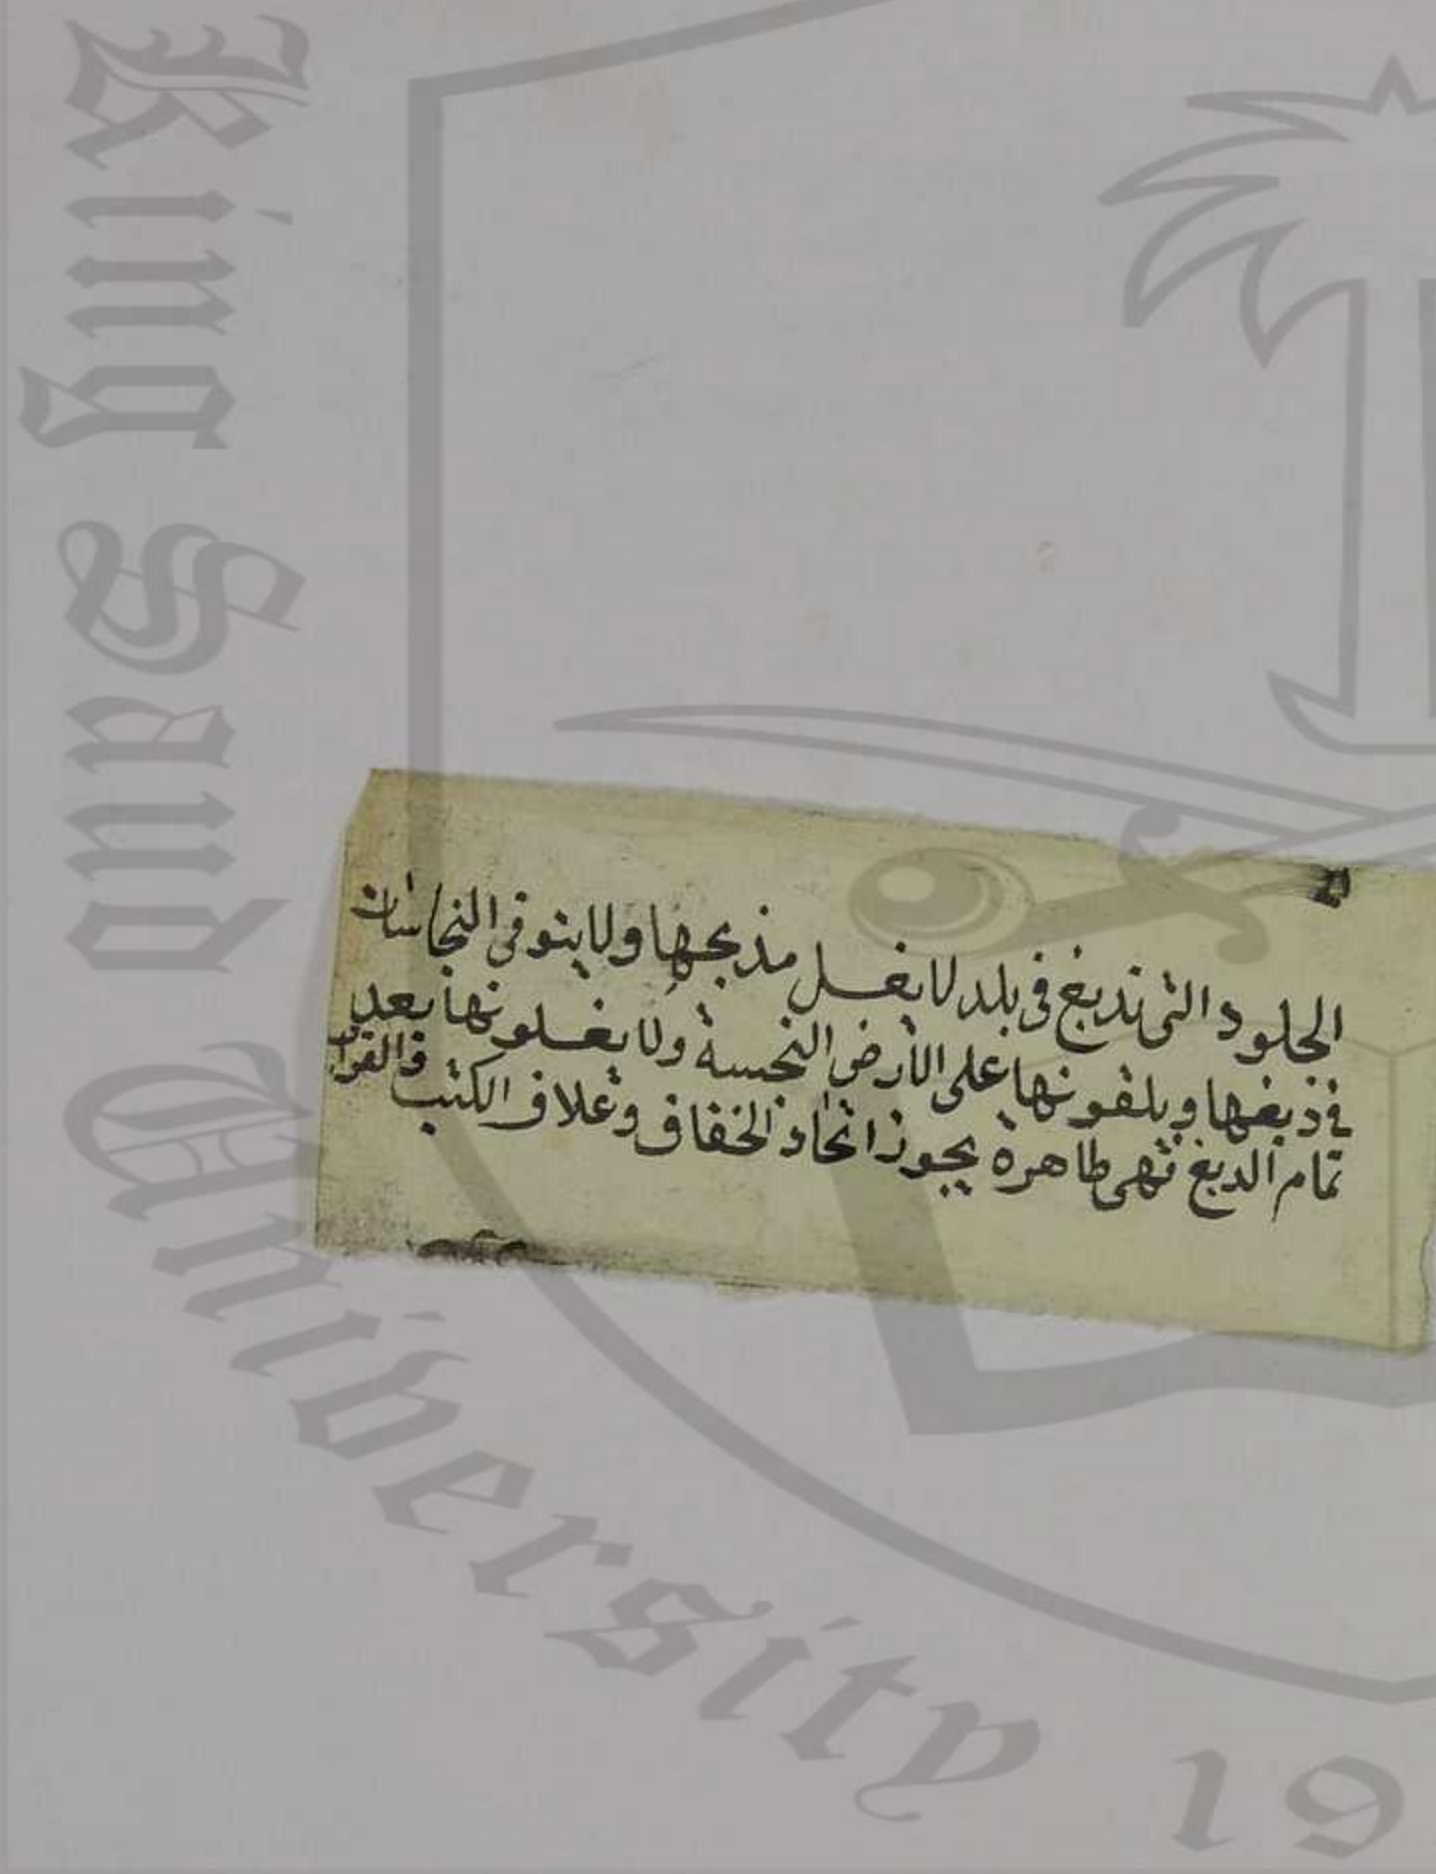 King Saud University 19
الجلود التي تدبغ في بلد لا يغسل مذبحها ولا يتوقى النجاسات
في دبغها ويلقونها على الأرض النجسة ولا يغسلونها بعد
تمام الدبغ فهي طاهرة يجوز اتخاذ الخفاف وغلاف الكتب والقرآن